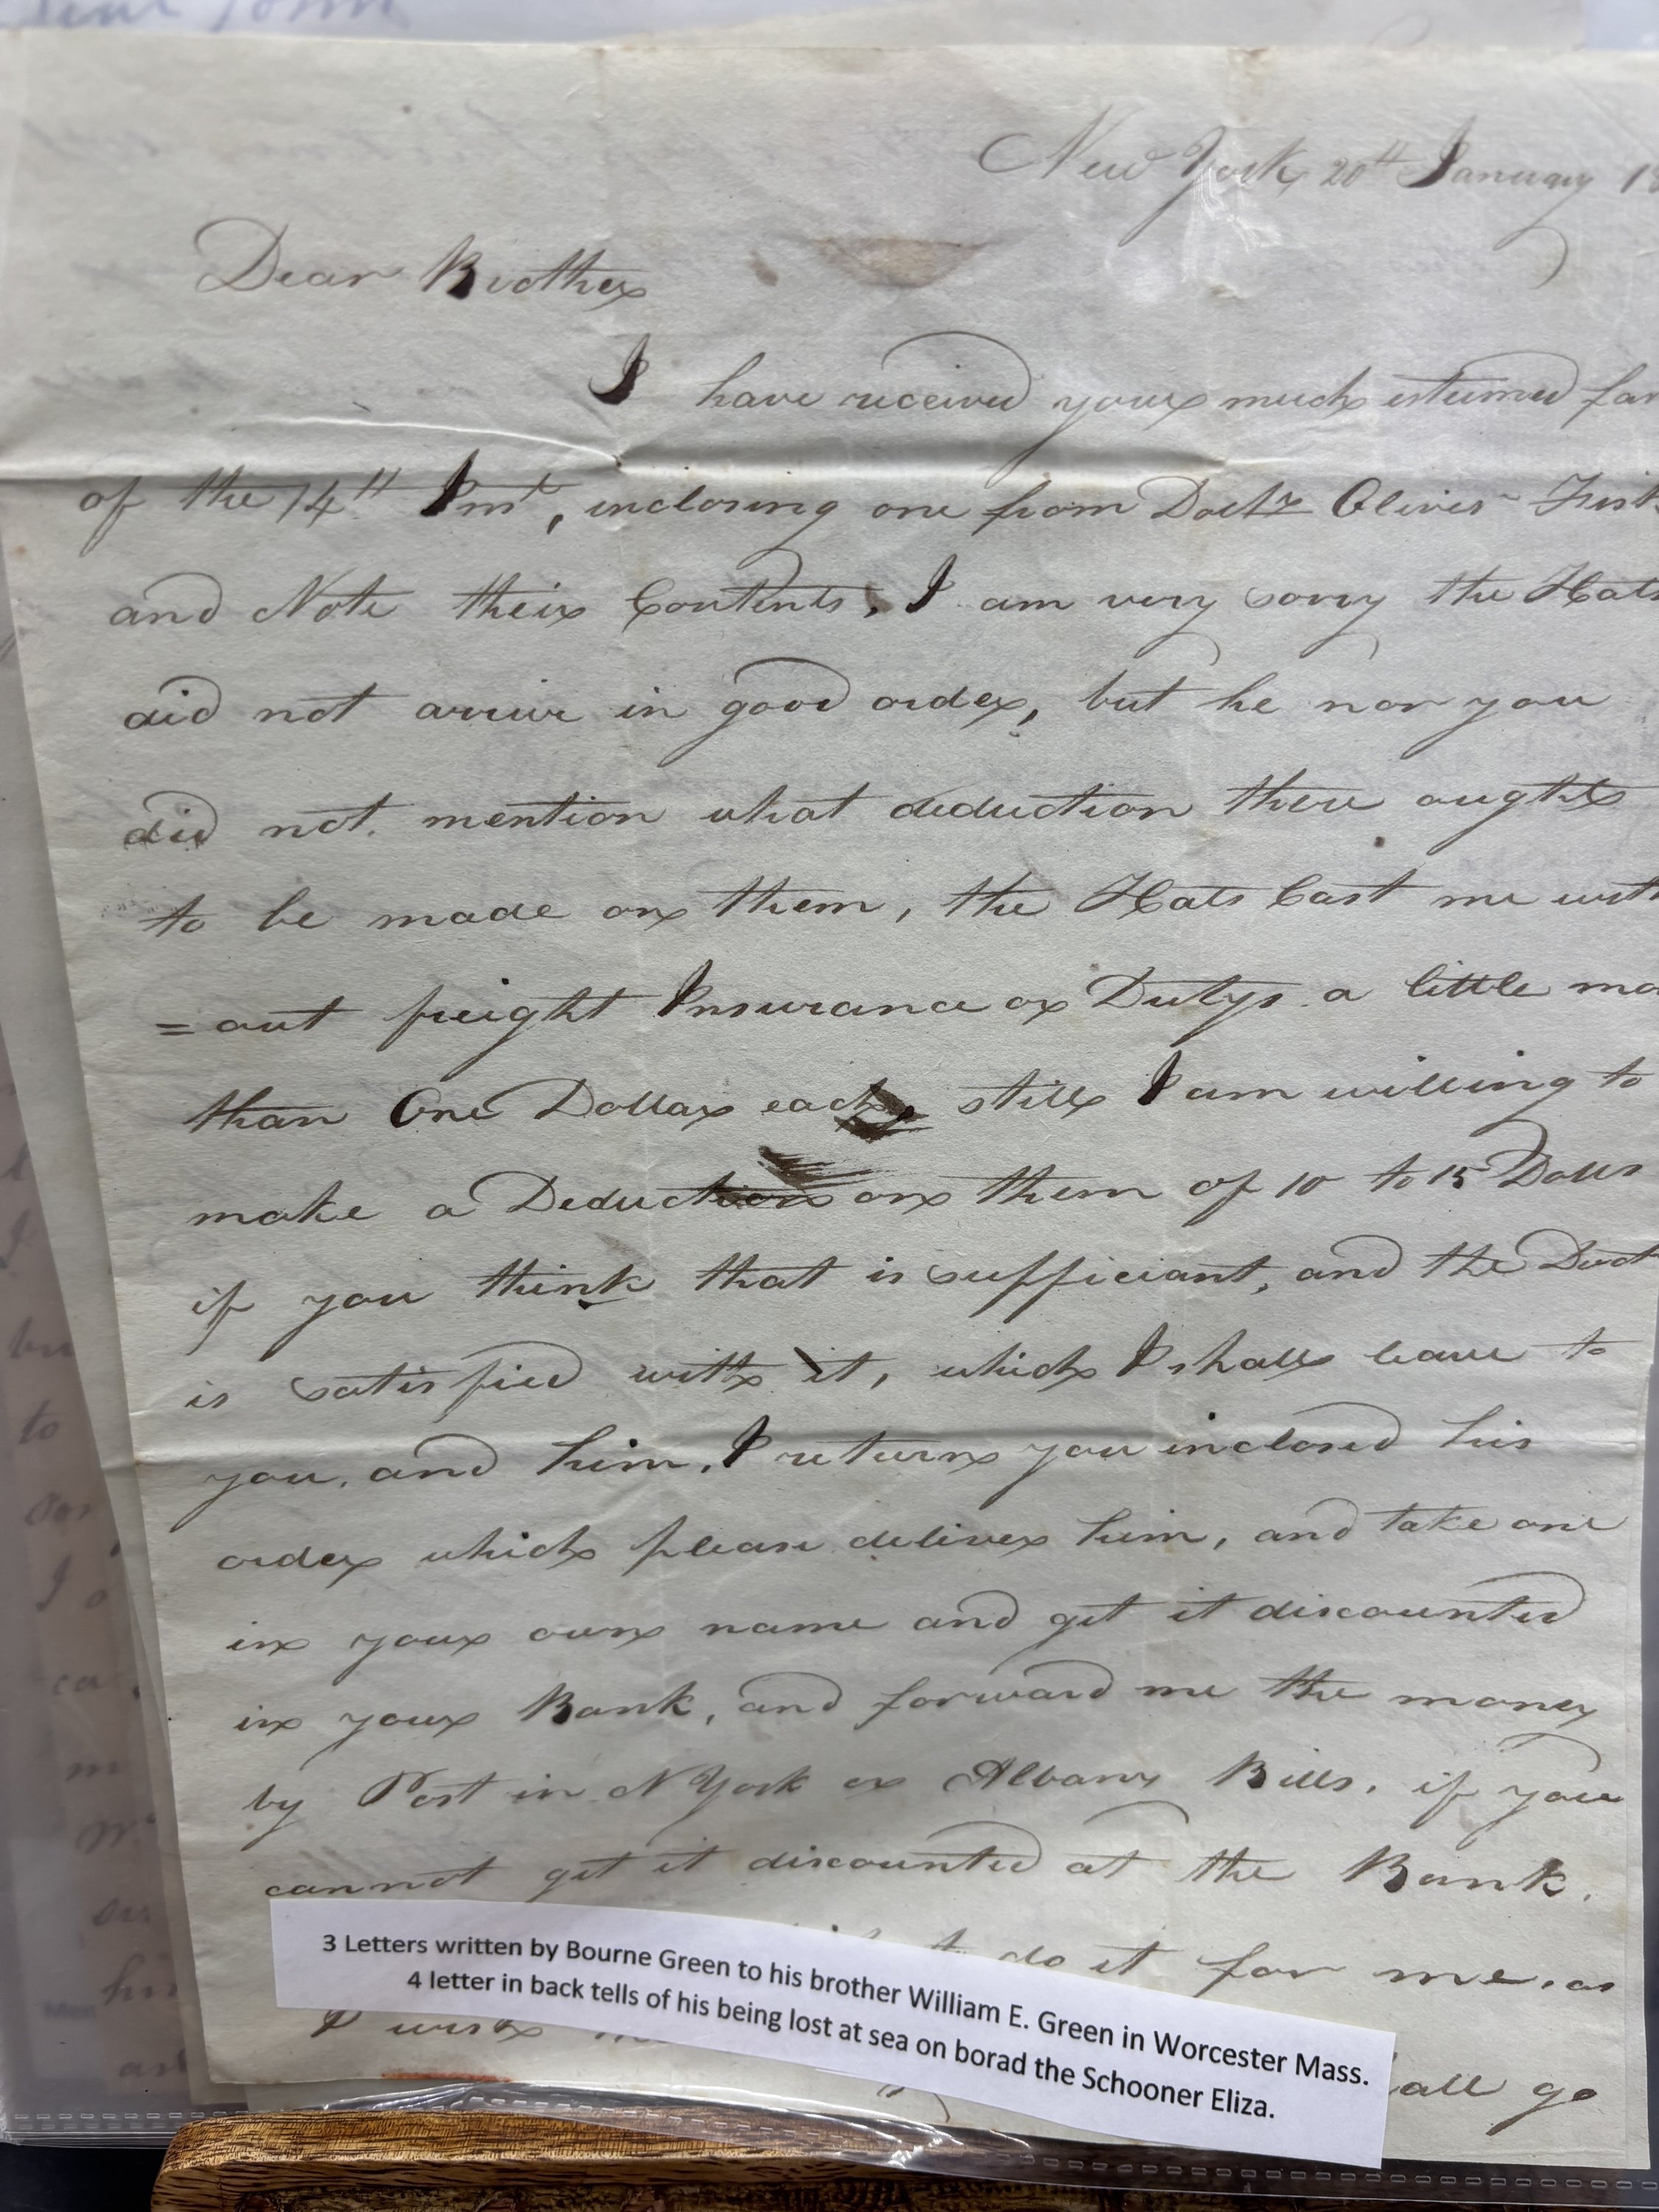 New York 20th January 18
Dear Brother
I have received your much esteemed fav
of the 14th Inst, inclosing one from Doctr Oliver Fisk
and Note their Contents, I am very sorry the Hats
did not arrive in good order, but he nor you
did not mention what deduction there aught
to be made on them, the Hats Cast me with
=out freight Insurance or Dutys a little mo
than One Dollar each, still I am willing to
make a Deduction on them of 10 to 15 Dolls
if you think that is sufficiant, and the Doct
is satisfied with it, which I shall leave to
you, and him, I return you inclosed his
order which please deliver him, and take one
in your own name and get it discounted
in your Bank, and forward me the money
by Post in N York or Albany Bills. if you
cannot get it discounted at the Bank.
to do it for me, as
I wish
all go
3 Letters written by Bourne Green to his brother William E. Green in Worcester Mass.
4 letter in back tells of his being lost at sea on borad the Schooner Eliza.